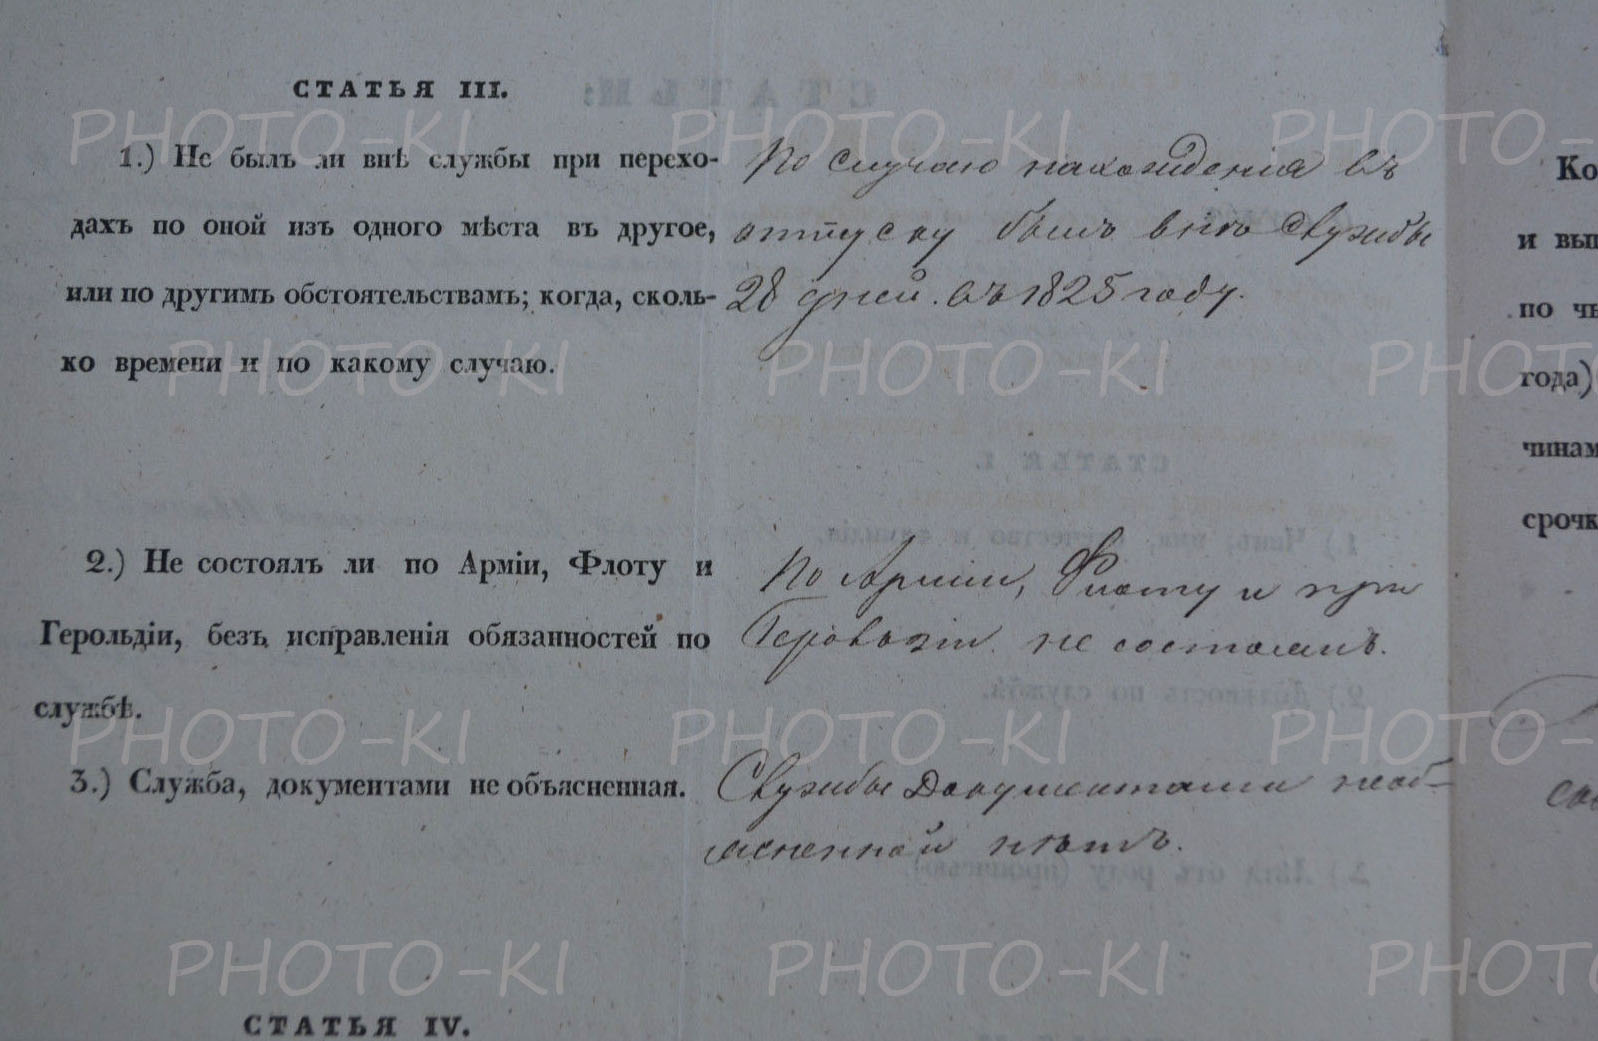 СТАТЬЯ III.
1.) Не былъ ли внѣ службы при перехо-
дахъ по оной изъ одного мѣста въ другое,
или по другимъ обстоятельствамъ; когда, сколь-
ко времени и по какому случаю.
По случаю нахожденія въ
отпуску былъ внѣ службы
28 дней въ 1825 году.
2.) Не состоялъ ли по Арміи, Флоту и
Герольдіи, безъ исправленія обязанностей по
службѣ.
По Арміи, Флоту и при
Герольдіи не состоялъ.
3.) Служба, документами не объясненная.
Службы документами необ-
ъясненной нѣтъ.
СТАТЬЯ IV.
Ко
и вып
по
года)
чинам
срочк
PHOTO-KI
PHOTO-KI
PHOTO-
PHOTO-KI
PHOTO-KI
PHOTO-KI
PHOTO-KI
PHOTO-
PHOTO-KI
PHOTO-KI